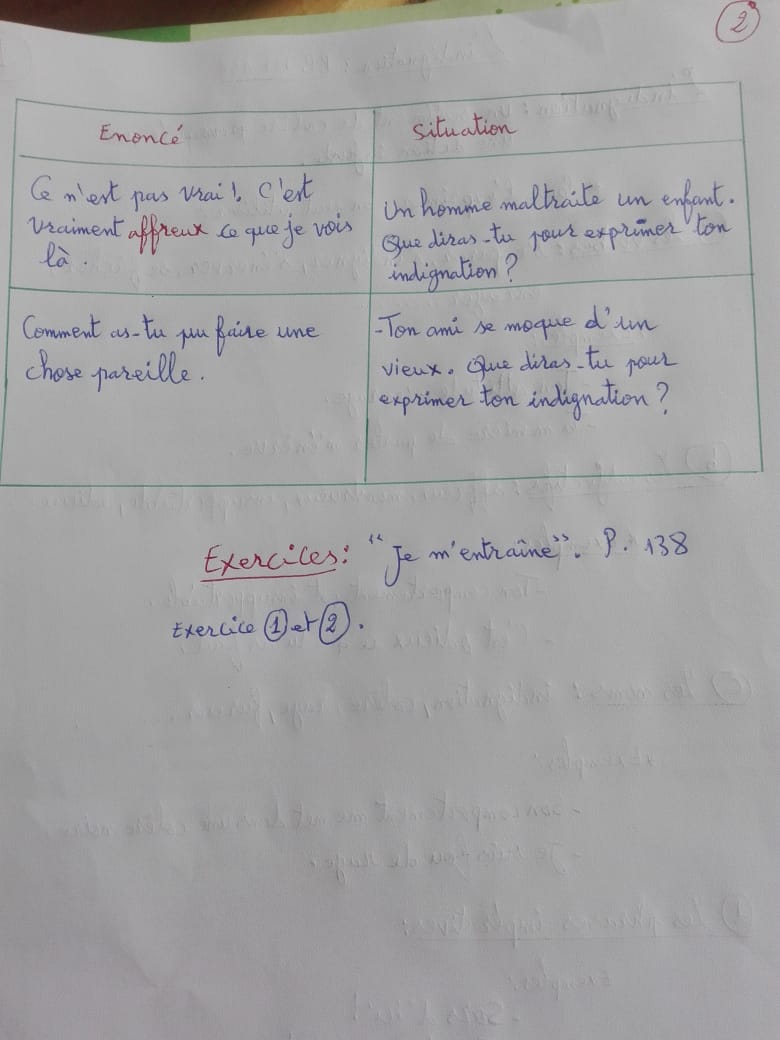 2
Enoncé
Situation
Ce n'est pas vrai! C'est
vraiment affreux ce que je vois
là.
Un homme maltraite un enfant.
Que diras-tu pour exprimer ton
indignation?
Comment as-tu pu faire une
chose pareille.
-Ton ami se moque d'un
vieux. Que diras-tu pour
exprimer ton indignation?
Exercices: "Je m'entraîne". P. 138
Exercice 1 et 2.